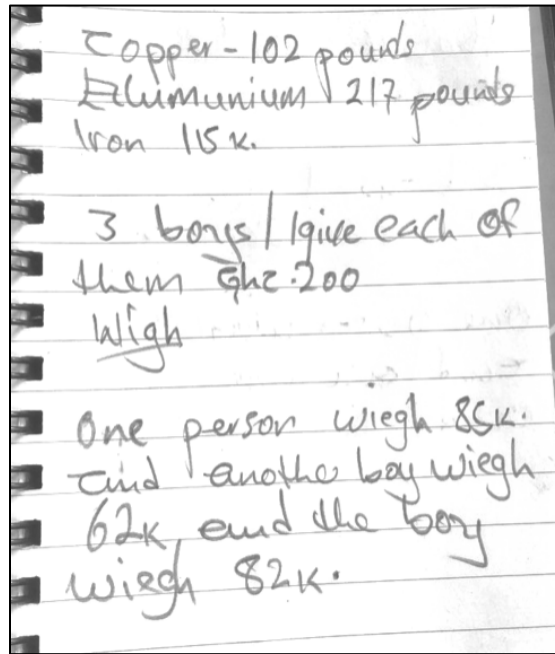 Copper - 102 pounds
Alumunium 217 pounds
Iron 115 K.
3 boys / I give each of
them Ghc.200
Wigh
One person wiegh 85K.
and another boy wiegh
62K, and the boy
wiegh 82K.